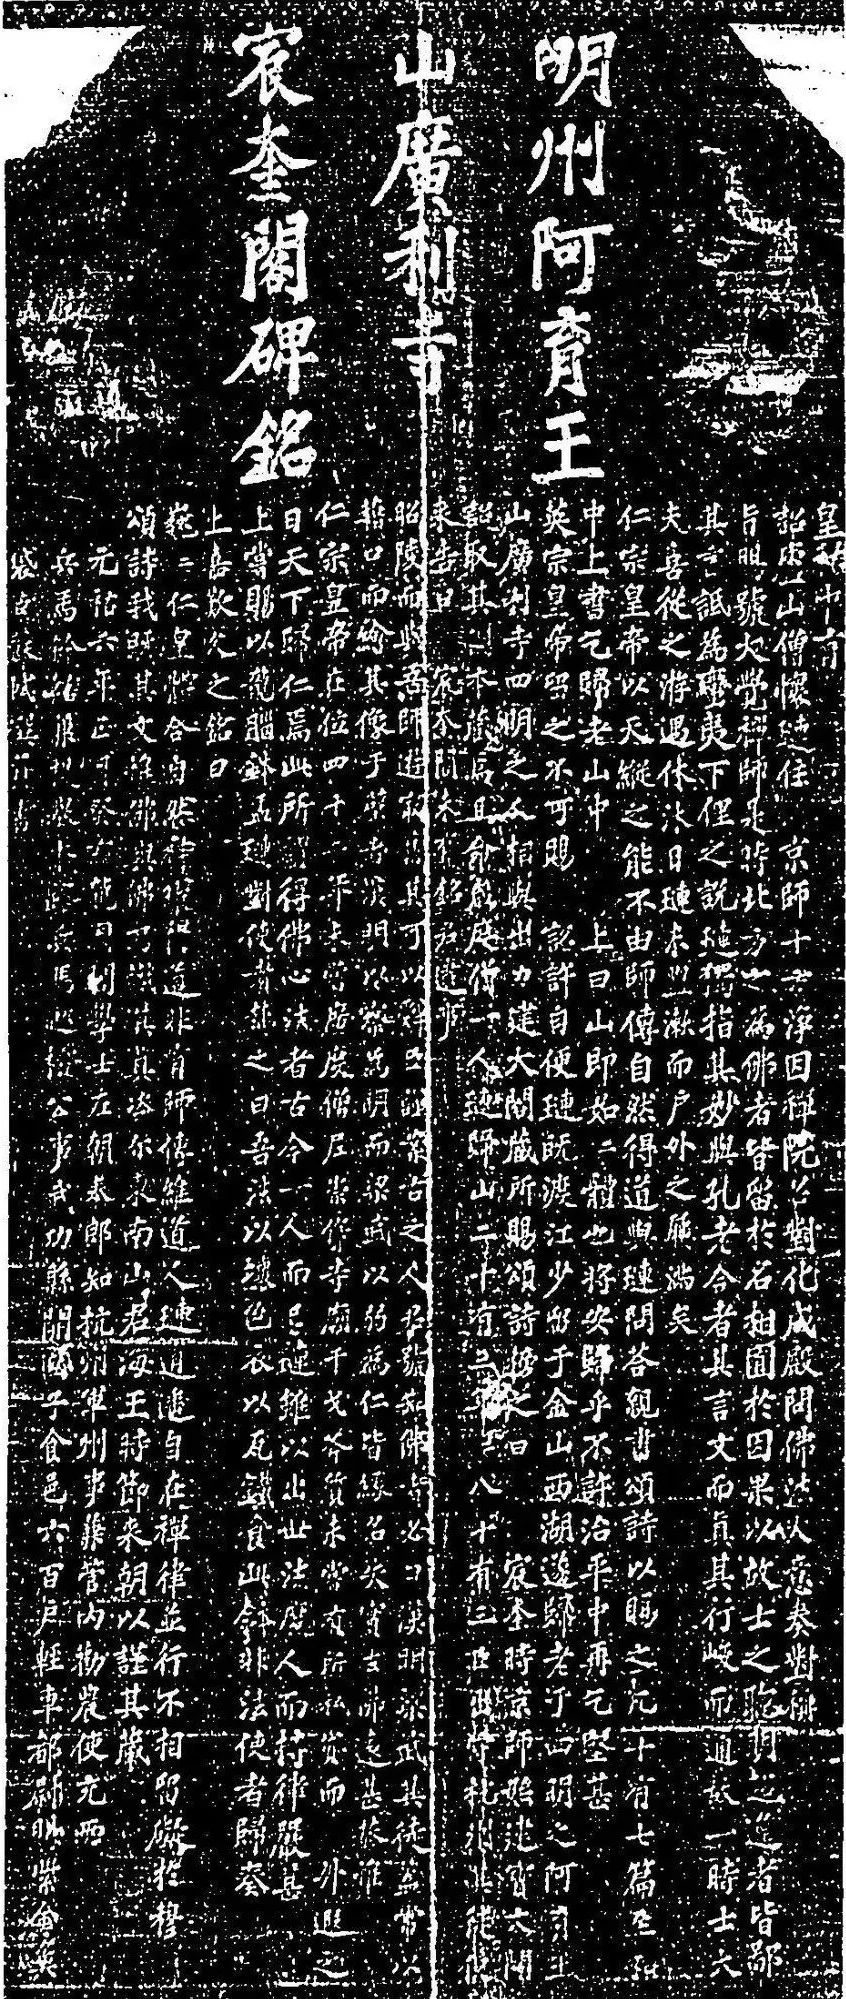 明州阿育王
山廣利寺
宸奎閣碑銘
皇祐中有
詔廬山僧懷璉住 京師十方淨因禪院召對化成殿問佛法大意奏對稱
旨賜號大覺禪師是時北方之為佛者皆留於名相囿於因果以故士之聰明超軼者皆鄙
其言詆為蠻夷下俚之說璉獨指其妙與孔老合者其言文而真其行峻而通故一時士大
夫喜從之游遇休沐日璉未盥漱而戶外之屨滿矣
仁宗皇帝以天縱之能不由師傳自然得道與璉問答親書頌詩以賜之凡十有七篇至和
中上書乞歸老山中 上曰山即如如體也將安歸乎不許治平中再乞堅甚
英宗皇帝留之不可賜 詔許自便璉既渡江少留于金山西湖遂歸老于四明之阿育王
山廣利寺四明之人相與出力建大閣藏所賜頌詩榜之曰 宸奎時京師始建寶文閣
詔取其副本藏焉且命歲度僧一人璉歸山二十有三年 八十有三臣出守杭州其徒使
來告曰 宸奎閣未有銘君逮事
昭陵而與吾師遊最舊其可以辭臣謹案古之人君號知佛者必曰漢明梁武其徒蓋常以
藉口而繪其像于壁者漢明以察為明而梁武以弱為仁皆緣名失實去佛遠甚恭惟
仁宗皇帝在位四十二年未嘗廣度僧尼崇侈寺廟干戈斧質未嘗有所私貸而 升遐之
日天下歸仁焉此所謂得佛心法者古今一人而已璉雖以出世法度人而持律嚴甚
上嘗賜以龍腦鉢盂璉對使者焚之曰吾法以壞色衣以瓦鐵食此鉢非法使者歸奏
上嘉歎久之銘曰
巍巍仁皇體合自然神曜得道非有師傳維道人璉逍遙自在禪律並行不相留礙於穆
頌詩我既其文惟佛與佛乃識其真咨爾東南山君海王時節來朝以謹其藏
元祐六年正月 龍圖閣學士左朝奉郎知杭州軍州事兼管內勸農使充兩
兵馬鈐轄 兵馬巡檢公事武功縣開國子食邑六百戶輕車都尉賜紫金魚
袋臣蘇軾撰并書